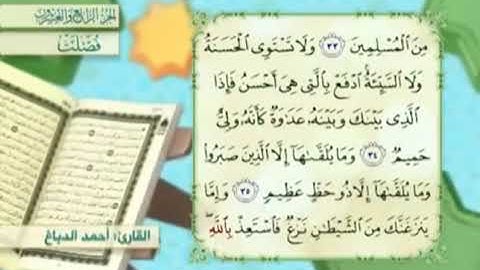 الجزء الرابع والعشرون
فُصِّلَتْ
مِنَ ٱلْمُسْلِمِينَ ٣٣ وَلَا تَسْتَوِى ٱلْحَسَنَةُ
وَلَا ٱلسَّيِّئَةُ ٱدْفَعْ بِٱلَّتِى هِىَ أَحْسَنُ فَإِذَا
ٱلَّذِى بَيْنَكَ وَبَيْنَهُۥ عَدَٰوَةٌ كَأَنَّهُۥ وَلِىٌّ
حَمِيمٌ ٣٤ وَمَا يُلَقَّىٰهَآ إِلَّا ٱلَّذِينَ صَبَرُوا۟
وَمَا يُلَقَّىٰهَآ إِلَّا ذُو حَظٍّ عَظِيمٍ ٣٥ وَإِمَّا
يَنزَغَنَّكَ مِنَ ٱلشَّيْطَٰنِ نَزْغٌ فَٱسْتَعِذْ بِٱللَّهِ
القارئ: أحمد الدباغ